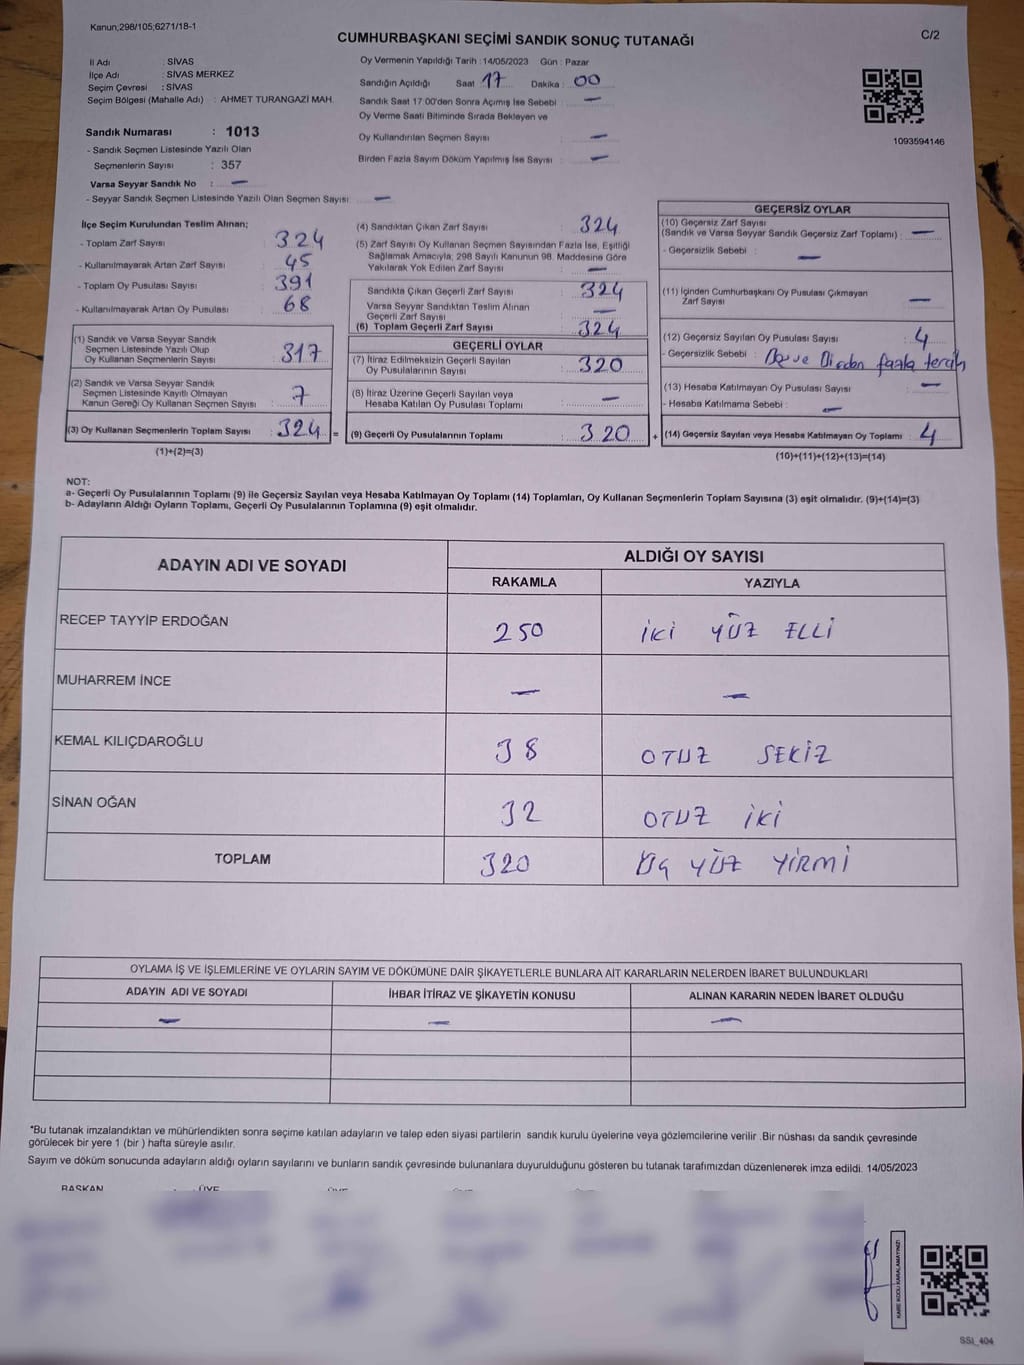 Kanun;298/105;6271/18-1
CUMHURBAŞKANI SEÇİMİ SANDIK SONUÇ TUTANAĞI
C/2
İl Adı : SİVAS
İlçe Adı : SİVAS MERKEZ
Seçim Çevresi : SİVAS
Seçim Bölgesi (Mahalle Adı) : AHMET TURANGAZİ MAH.
Sandık Numarası : 1013
- Sandık Seçmen Listesinde Yazılı Olan
Seçmenlerin Sayısı : 357
Varsa Seyyar Sandık No : —
- Seyyar Sandık Seçmen Listesinde Yazılı Olan Seçmen Sayısı: —
Oy Vermenin Yapıldığı Tarih : 14/05/2023 Gün : Pazar
Sandığın Açıldığı Saat 17 Dakika : 00
Sandık Saat 17:00'den Sonra Açımış İse Sebebi : —
Oy Verme Saati Bitiminde Sırada Bekleyen ve
Oy Kullandırılan Seçmen Sayısı : —
Birden Fazla Sayım Döküm Yapılmış İse Sayısı : —
1093594146
İlçe Seçim Kurulundan Teslim Alınan;
- Toplam Zarf Sayısı : 324
- Kullanılmayarak Artan Zarf Sayısı : 45
- Toplam Oy Pusulası Sayısı : 391
- Kullanılmayarak Artan Oy Pusulası : 68
(1) Sandık ve Varsa Seyyar Sandık
Seçmen Listesinde Yazılı Olup
Oy Kullanan Seçmenlerin Sayısı : 317
(2) Sandık ve Varsa Seyyar Sandık
Seçmen Listesinde Kayıtlı Olmayan
Kanun Gereği Oy Kullanan Seçmen Sayısı : 7
(3) Oy Kullanan Seçmenlerin Toplam Sayısı : 324 =
(1)+(2)=(3)
(4) Sandıktan Çıkan Zarf Sayısı : 324
(5) Zarf Sayısı Oy Kullanan Seçmen Sayısından Fazla İse, Eşitliği
Sağlamak Amacıyla, 298 Sayılı Kanunun 98. Maddesine Göre
Yakılarak Yok Edilen Zarf Sayısı : —
Sandıkta Çıkan Geçerli Zarf Sayısı : 324
Varsa Seyyar Sandıktan Teslim Alınan
Geçerli Zarf Sayısı : —
(6) Toplam Geçerli Zarf Sayısı : 324
GEÇERLİ OYLAR
(7) İtiraz Edilmeksizin Geçerli Sayılan
Oy Pusulalarının Sayısı : 320
(8) İtiraz Üzerine Geçerli Sayılan veya
Hesaba Katılan Oy Pusulası Toplamı : —
(9) Geçerli Oy Pusulalarının Toplamı : 320 +
GEÇERSİZ OYLAR
(10) Geçersiz Zarf Sayısı
(Sandık ve Varsa Seyyar Sandık Geçersiz Zarf Toplamı) : —
- Geçersizlik Sebebi : —
(11) İçinden Cumhurbaşkanı Oy Pusulası Çıkmayan
Zarf Sayısı : —
(12) Geçersiz Sayılan Oy Pusulası Sayısı : 4
- Geçersizlik Sebebi : Birden fazla tercih
(13) Hesaba Katılmayan Oy Pusulası Sayısı : —
- Hesaba Katılmama Sebebi : —
(14) Geçersiz Sayılan veya Hesaba Katılmayan Oy Toplamı : 4
(10)+(11)+(12)+(13)=(14)
NOT:
a- Geçerli Oy Pusulalarının Toplamı (9) ile Geçersiz Sayılan veya Hesaba Katılmayan Oy Toplamı (14) Toplamları, Oy Kullanan Seçmenlerin Toplam Sayısına (3) eşit olmalıdır. (9)+(14)=(3)
b- Adayların Aldığı Oyların Toplamı, Geçerli Oy Pusulalarının Toplamına (9) eşit olmalıdır.
ADAYIN ADI VE SOYADI ALDIĞI OY SAYISI
RAKAMLA YAZIYLA
RECEP TAYYİP ERDOĞAN 250 İKİ YÜZ ELLİ
MUHARREM İNCE — —
KEMAL KILIÇDAROĞLU 38 OTUZ SEKİZ
SİNAN OĞAN 32 OTUZ İKİ
TOPLAM 320 ÜÇ YÜZ YİRMİ
OYLAMA İŞ VE İŞLEMLERİNE VE OYLARIN SAYIM VE DÖKÜMÜNE DAİR ŞİKAYETLERLE BUNLARA AİT KARARLARIN NELERDEN İBARET BULUNDUKLARI
ADAYIN ADI VE SOYADI İHBAR İTİRAZ VE ŞİKAYETİN KONUSU ALINAN KARARIN NEDEN İBARET OLDUĞU
— — —
*Bu tutanak imzalandıktan ve mühürlendikten sonra seçime katılan adayların ve talep eden siyasi partilerin sandık kurulu üyelerine veya gözlemcilerine verilir .Bir nüshası da sandık çevresinde
görülecek bir yere 1 (bir ) hafta süreyle asılır.
Sayım ve döküm sonucunda adayların aldığı oyların sayılarını ve bunların sandık çevresinde bulunanlara duyurulduğunu gösteren bu tutanak tarafımızdan düzenlenerek imza edildi. 14/05/2023
BAŞKAN ÜYE ÜYE
KARE KODU KARALAMAYINIZ!
SSI_404